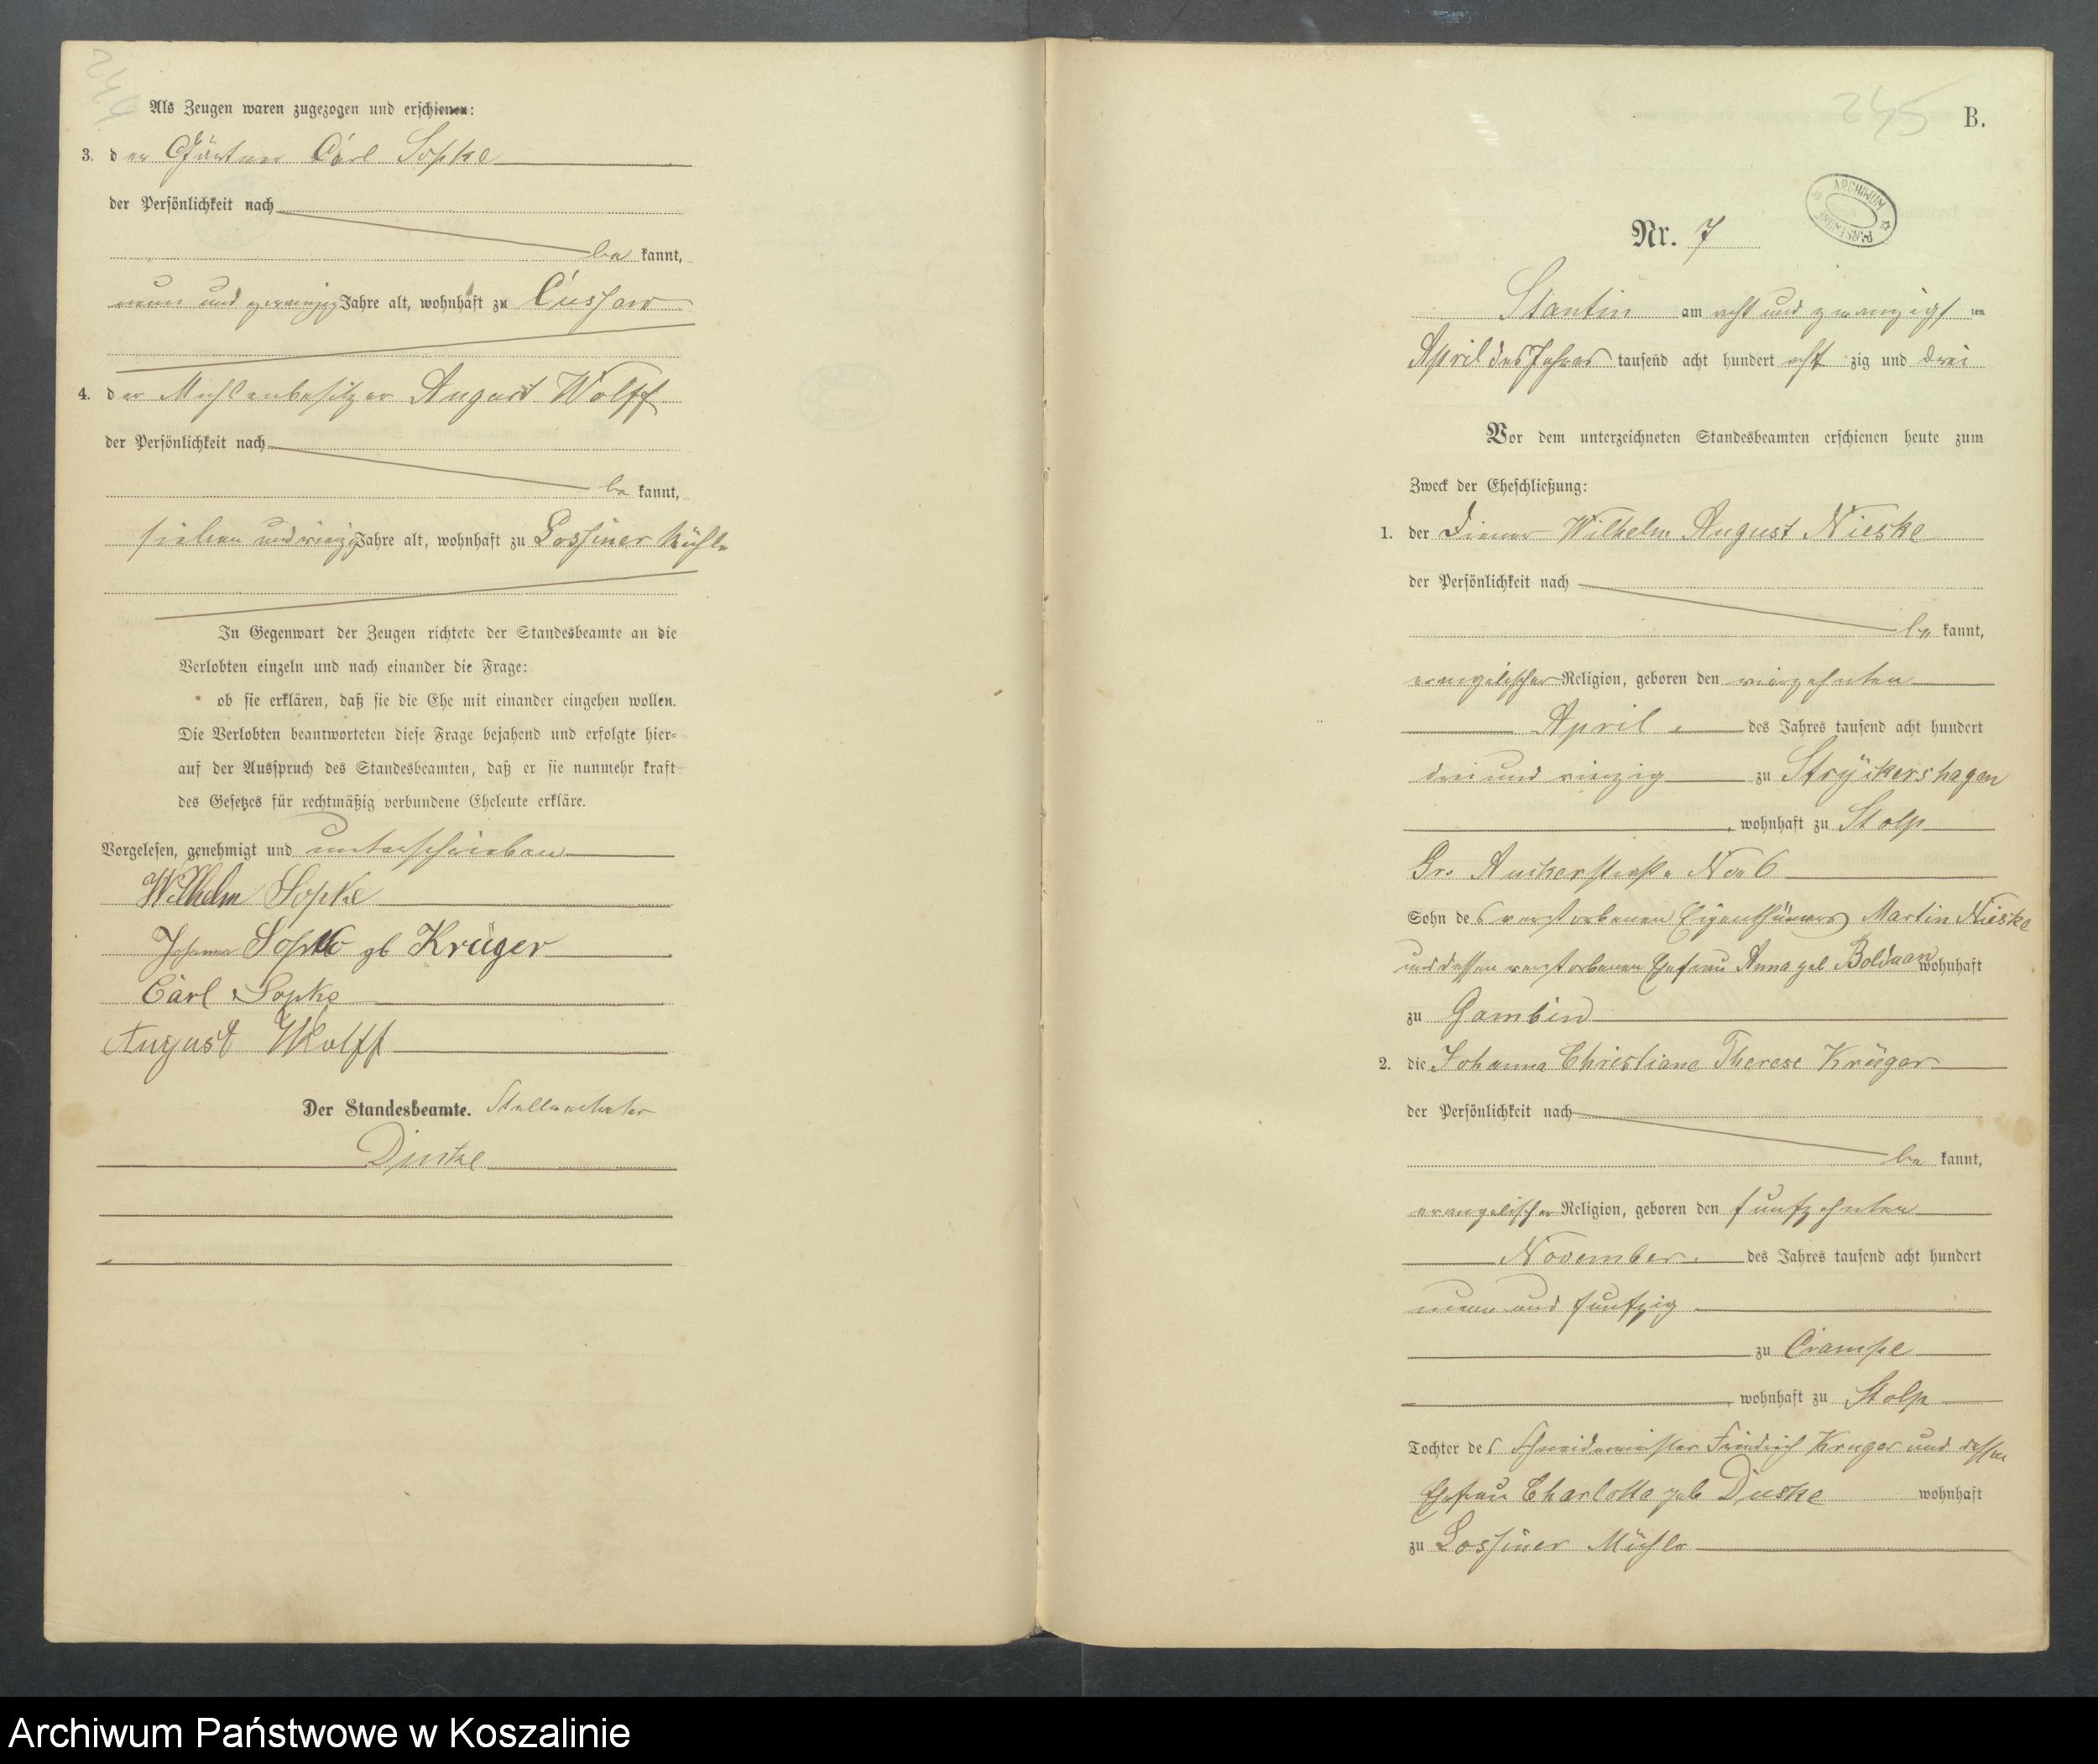 Als Zeugen waren zugezogen und erschienen:
3. der Gärtner Carl Sopke
der Persönlichkeit nach
be kannt,
neun und zwanzig Jahre alt, wohnhaft zu Cussow
4. der Mühlenbesitzer August Wolff
der Persönlichkeit nach
be kannt,
sieben und vierzig Jahre alt, wohnhaft zu Lossiner Mühle
In Gegenwart der Zeugen richtete der Standesbeamte an die
Verlobten einzeln und nach einander die Frage:
ob sie erklären, daß sie die Ehe mit einander eingehen wollen.
Die Verlobten beantworteten diese Frage bejahend und erfolgte hier-
auf der Ausspruch des Standesbeamten, daß er sie nunmehr kraft
des Gesetzes für rechtmäßig verbundene Eheleute erkläre.
Vorgelesen, genehmigt und unterschrieben
Wilhelm Sopke
Johanna Sopke gb Krüger
Carl Sopke
August Wolff
Der Standesbeamte. Stellvertreter
245
B.
ARCHIWUM PAŃSTWOWE
Nr. 7
Stantin am acht und zwanzigs ten
April des Jahres tausend acht hundert acht zig und drei
Vor dem unterzeichneten Standesbeamten erschienen heute zum
Zweck der Eheschließung:
1. der Diener Wilhelm August Nieske
der Persönlichkeit nach
be kannt,
evangelischer Religion, geboren den vierzehnten
April des Jahres tausend acht hundert
drei und vierzig zu Stryckershagen
, wohnhaft zu Stolp
Gr. Auckerstraße No 6
Sohn des verstorbenen Eigenthümers Martin Nieske
und dessen verstorbenen Ehefrau Anna geb Bolduan wohnhaft
zu Gambin
2. die Johanna Christiane Therese Krüger
der Persönlichkeit nach
be kannt,
evangelischer Religion, geboren den funfzehnten
November des Jahres tausend acht hundert
neun und funfzig
zu Crampe
, wohnhaft zu Stolp
Tochter des Schneidermeister Friedrich Kruger und dessen
Ehefrau Charlotte geb Duske wohnhaft
zu Lossiner Mühle
Archiwum Państwowe w Koszalinie